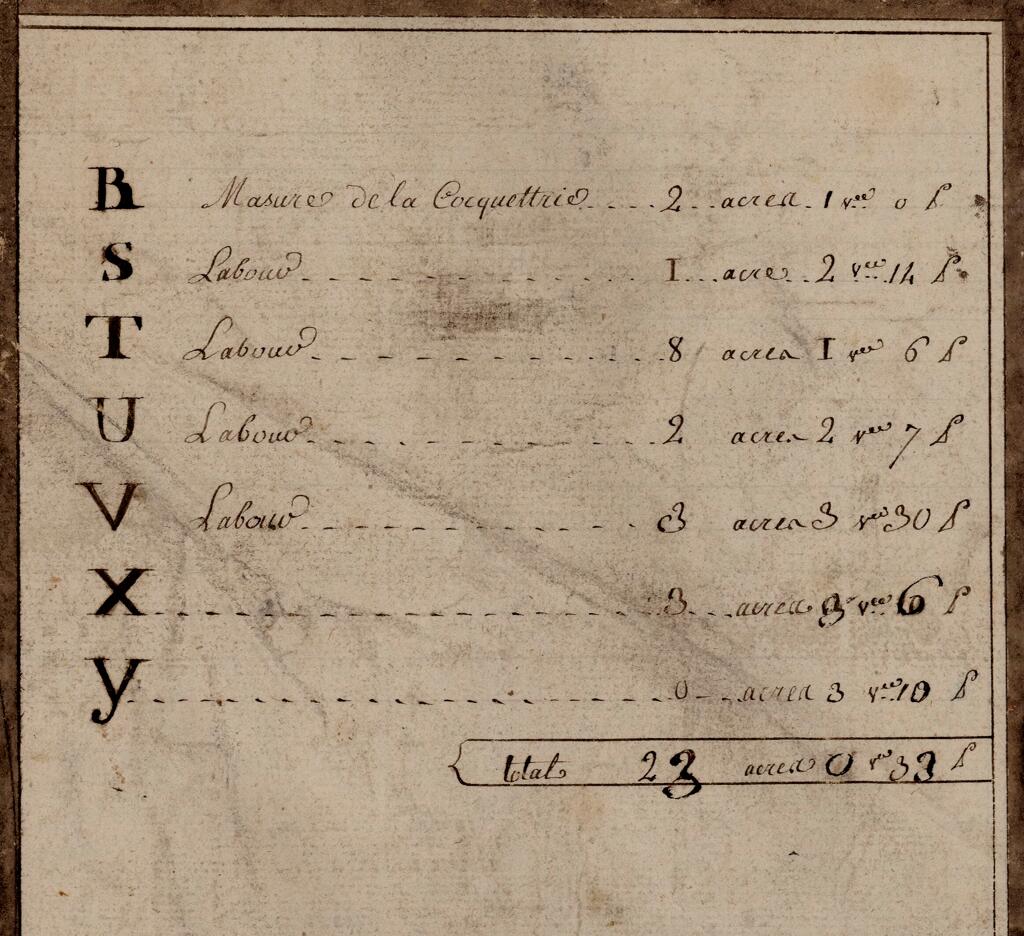 R Masure de la Cocquettrie 2 acres 1 vées 0 P
S Labour 1 acre 2 vées 14 P
T Labour 8 acres 1 vées 6 P
U Labour 2 acres 2 vées 7 P
V Labour 3 acres 3 vées 30 P
X 3 acres 3 vées 6 P
y 0 acres 3 vées 10 P
total 23 acres 0 vées 33 P